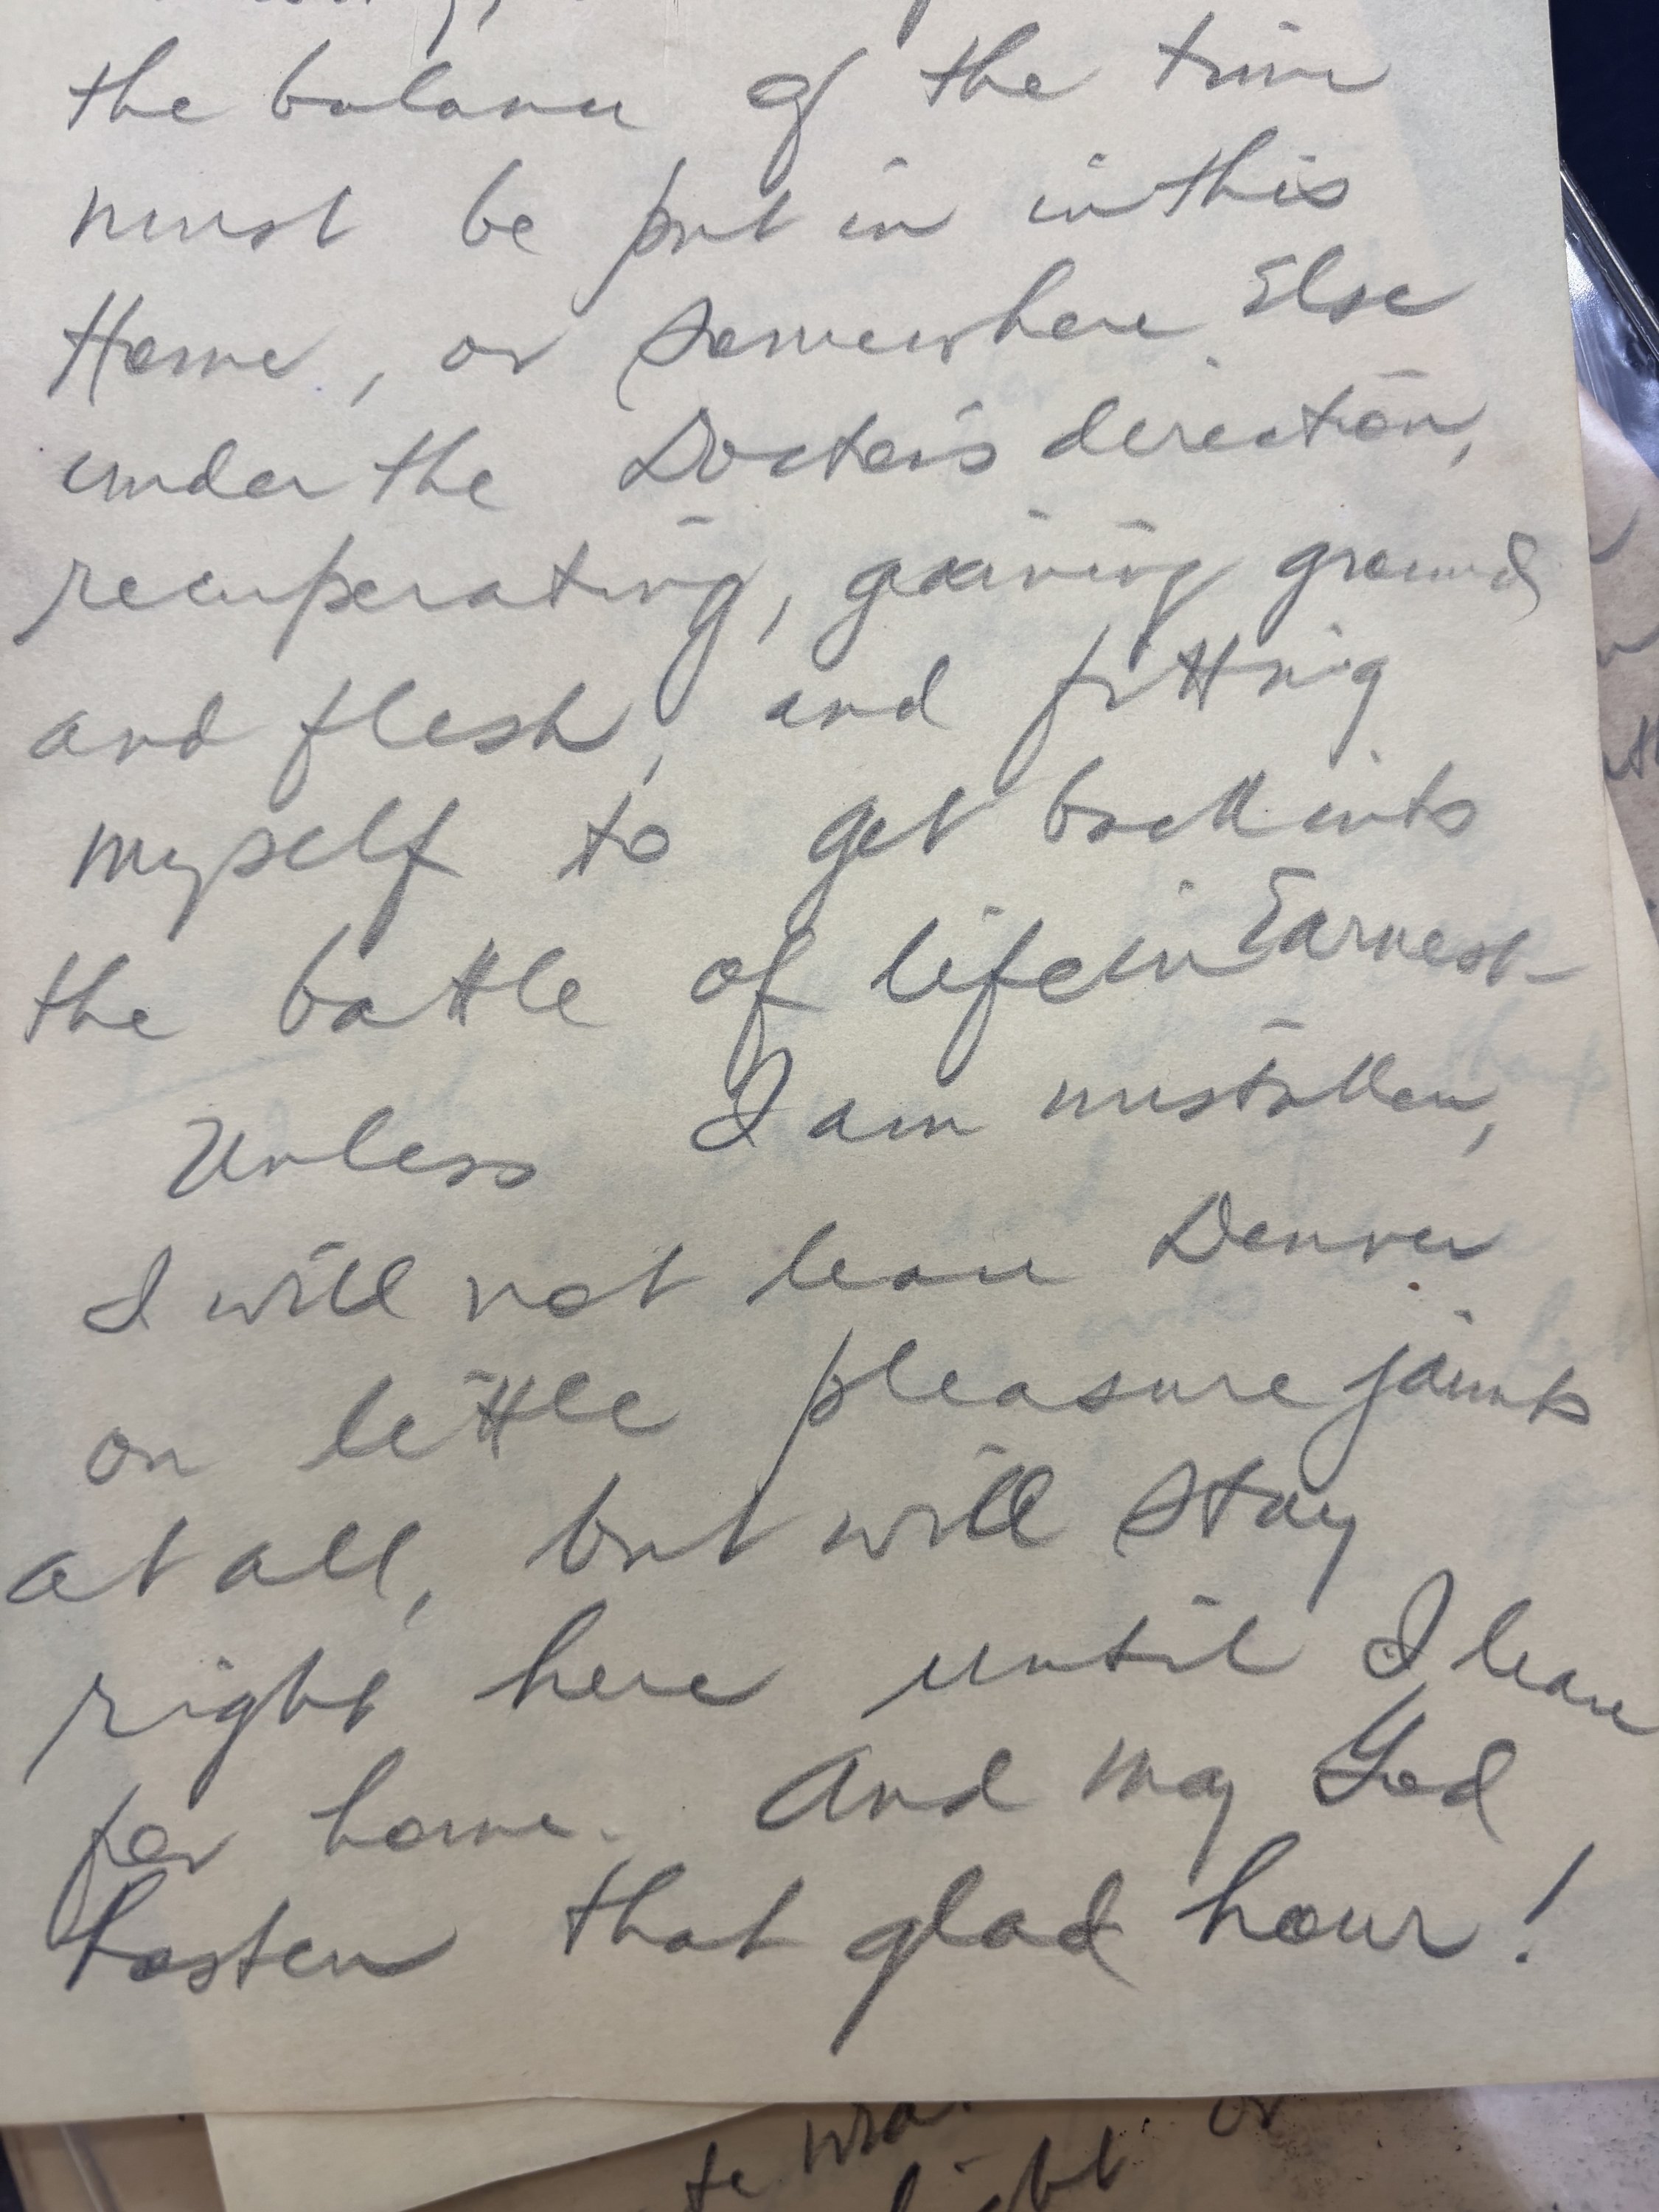 the balance of the time
must be put in in this
Home, or somewhere Else
under the Doctor's direction,
recuperating, gaining ground
and flesh, and fitting
myself to get back into
the battle of life in Earnest-
Unless I am mistaken,
I will not leave Denver
on little pleasure jaunts
at all, but will stay
right here until I leave
for home. And may God
hasten that glad hour!
or